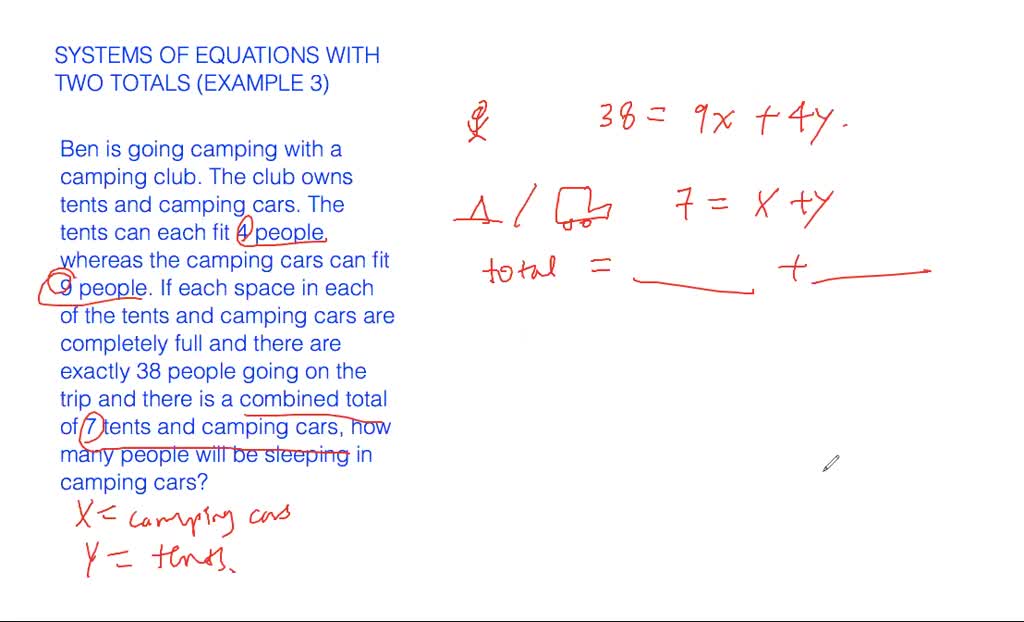 SYSTEMS OF EQUATIONS WITH
TWO TOTALS (EXAMPLE 3)
Ben is going camping with a
camping club. The club owns
tents and camping cars. The
tents can each fit 4 people,
whereas the camping cars can fit
9 people. If each space in each
of the tents and camping cars are
completely full and there are
exactly 38 people going on the
trip and there is a combined total
of 7 tents and camping cars, how
many people will be sleeping in
camping cars?
X = camping cars
Y = tents.
38 = 9x + 4y.
/ 7 = x + y
total = ____ + ____